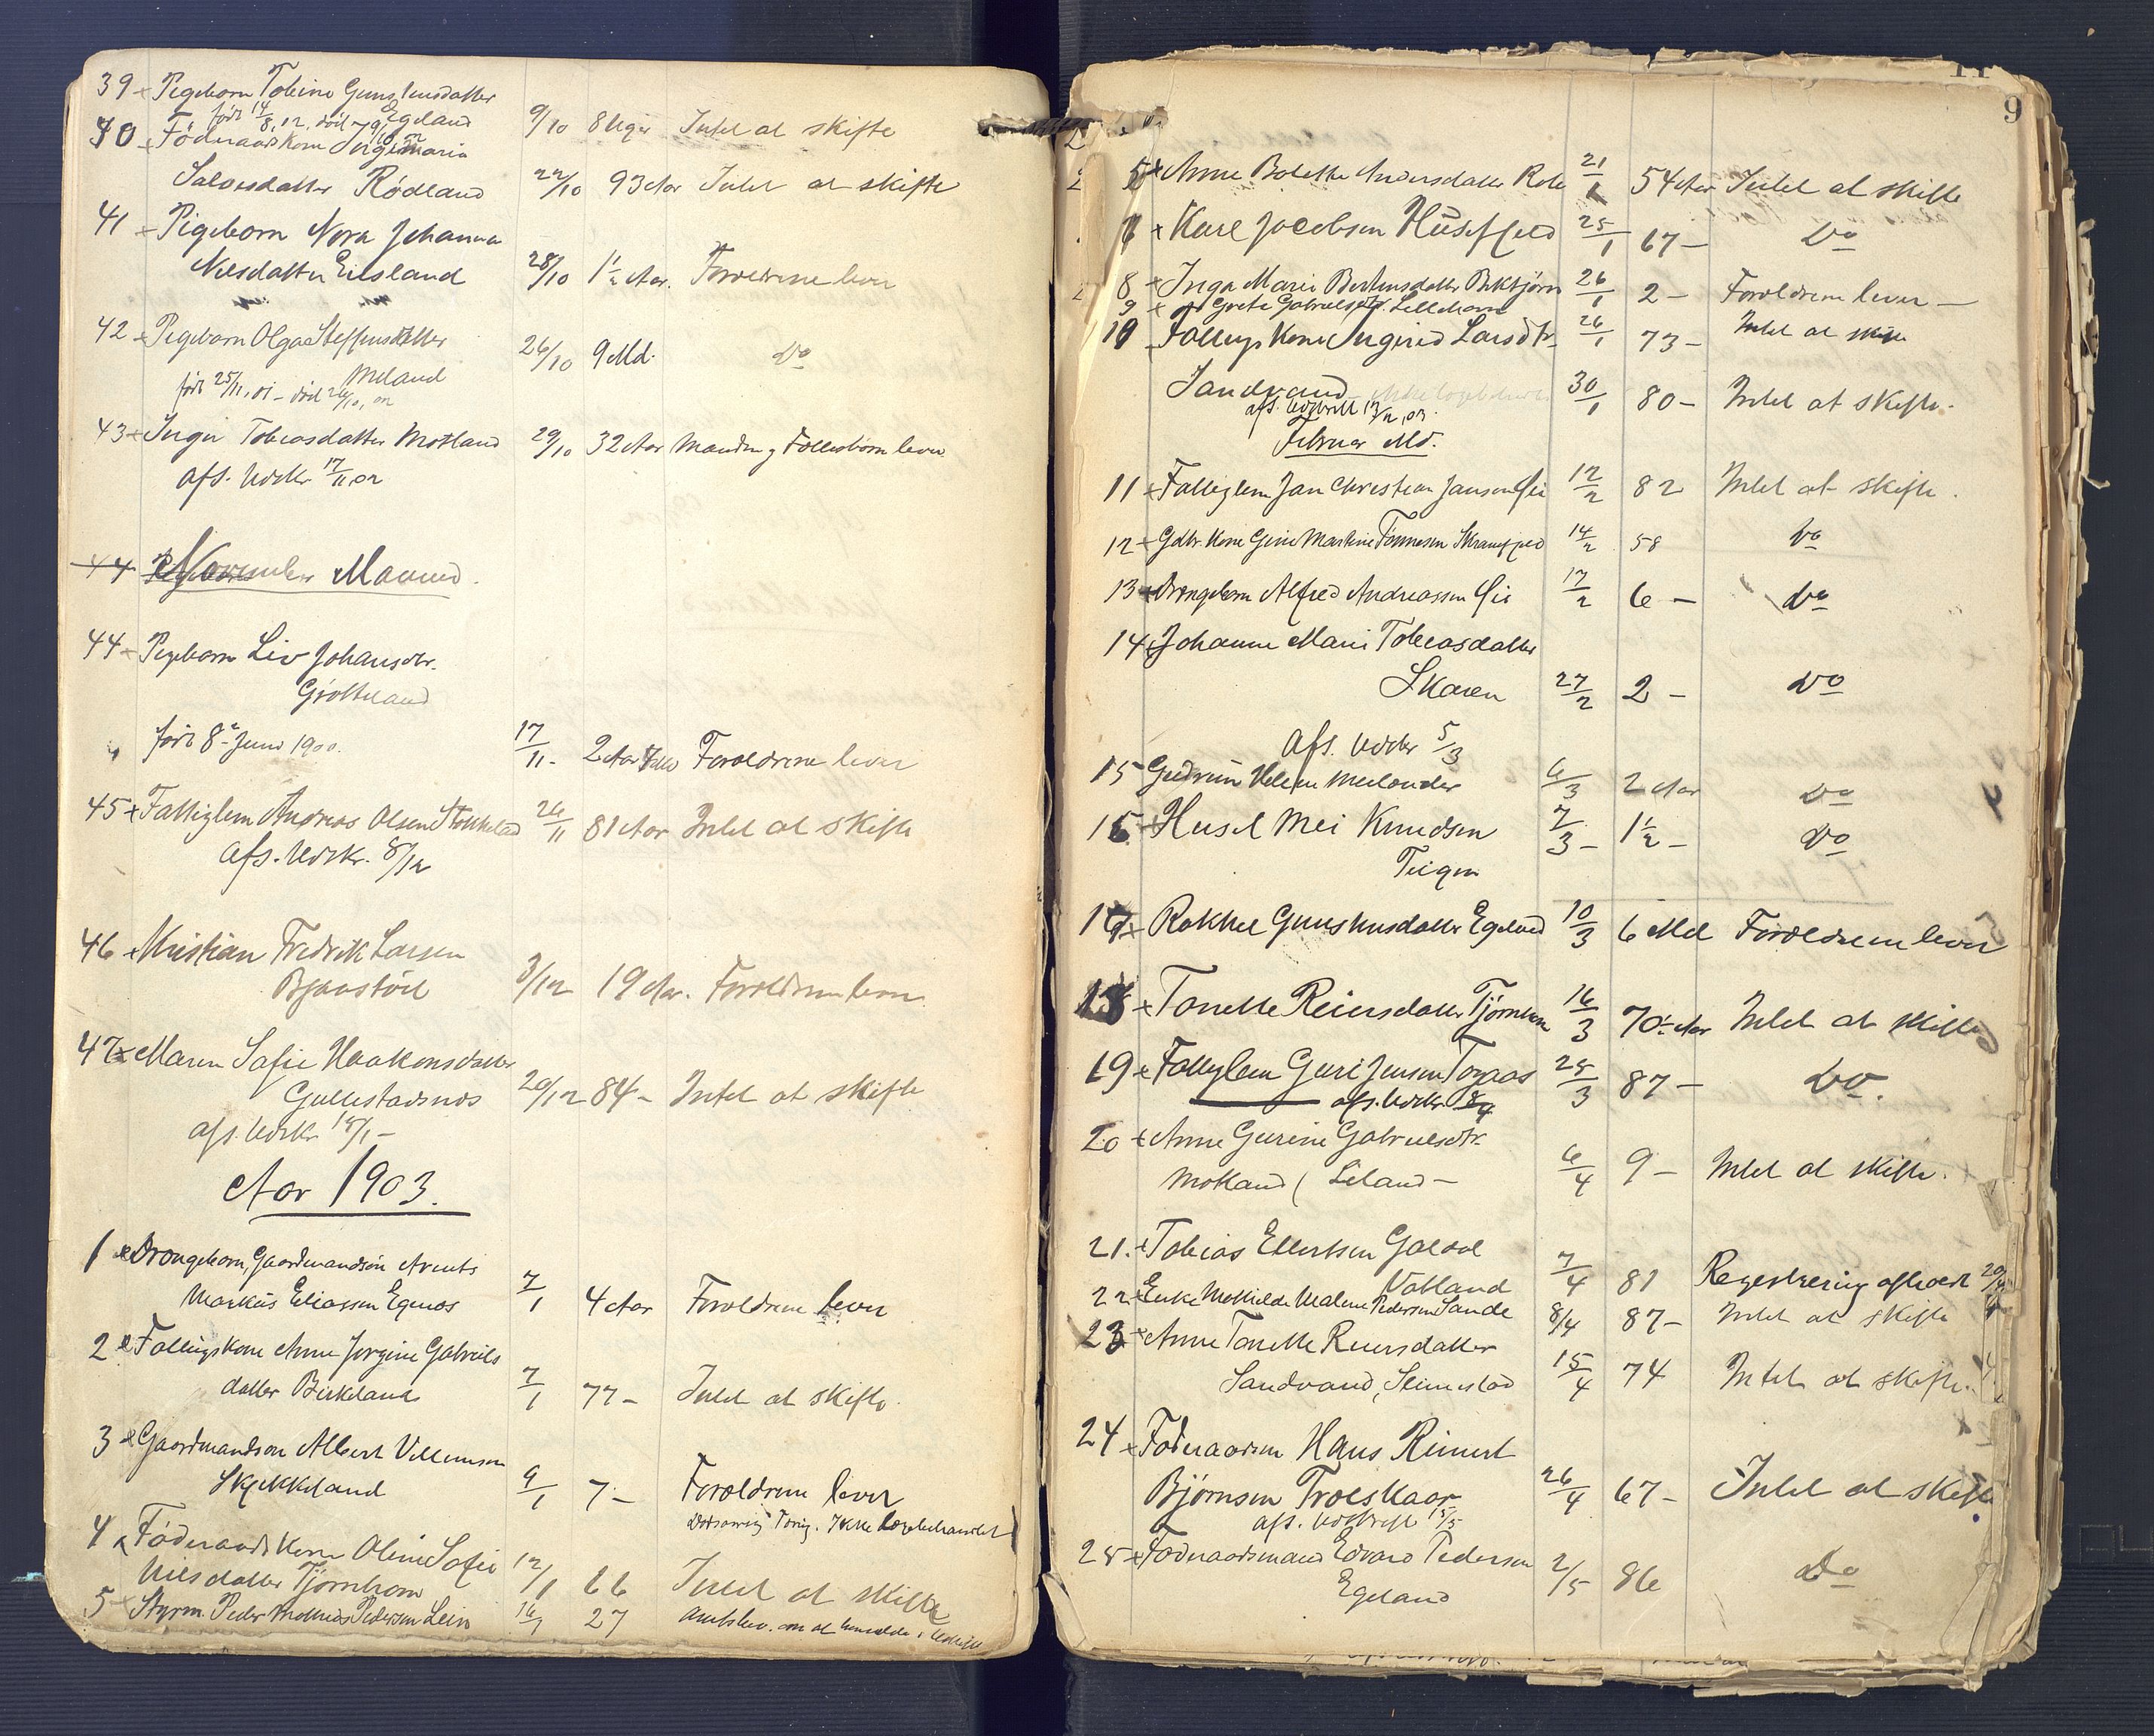 39 Pigebarn Tobine Gunstensdatter
født 14/8, 02, død 9/10 02 Egeland 9/10 8 Uger Intet at skifte
40 Føderaadskone Ingermaria
Salvesdatter Rødland 22/10 93 Aar Intet at skifte
41 Pigebarn Nora Johanna
Nilsdatter Eitland 28/10 1½ Aar. Forældrene lever
42 Pigebarn Olga Steffensdatter
Meland 26/10 9 Md. Do
født 25/11, 01 – død 26/10, 02
43 Inger Tobiasdatter Motland 29/10 32 Aar Manden og Fællesbørn lever
afs. Udskr 17/11 02
44 November Maaned.
44 Pigebarn Liv Johansdtr.
Grøtteland
født 8de Juni 1900. 17/11 2 Aar Forældrene lever
45 Fattiglem Andreas Olsen Stokkeland 26/11 81 Aar Intet at skifte
afs. Udskr. 8/12
46 Kristian Fredrik Larsen
Bjaastøil 3/12 19 Aar. Forældrene lever
47 Maren Sofie Haakonsdatter
Gullestadsnes 20/12 84 – Intet at skifte
afs. Udskr 15/1 –
Aar 1903.
1 Drengebarn, Gaardmandsøn Arents
Markus Eliassen Egenes 7/1 4 Aar Forældrene lever
2 Fattigkone Anne Jorgine Gabriels
datter Birkeland 7/1 77 – Intet at skifte.
3 Gaardmandsøn Albert Villumsen
Skjekkeland 9/1 7 – Forældrene lever
Ikke Lægebehandlet
4 Føderaadskone Oline Sofie
Nilsdatter Tjørnhom 12/1 66 Intet at skifte
5 Styrm. Peder Mathias Pedersen Lein 16/1 27
9
Anne Bolette Andersdatter 21/1 54 Aar Intet at skifte
Karl Jacobsen Husefjeld 25/1 67 – Do
8 Inga Marie Berthusdatter 26/1 2 – Forældrene lever –
9 Grete Gabrielsdtr. Lillehavn 26/1 73 – Intet at skifte
10 Fattigs Kone Ingerid Larsdtr.
Sandvand 30/1 80 – Intet at skifte.
afs. Udskrift 12/2, 03.
Februar Md.
11 Fattiglem Jan Christian Jansen 12/2 82 Intet at skifte.
12 Gdbr. Kone Gine Martine Tønnesen 14/2 58 Do
13 Drengebarn Alfred Andreassen 17/2 6 – Do
14 Johanne Marie Tobiasdatter
Skaren 27/2 2 – Do
Afs. Udskr 5/3
15 Gudrun Helene Meelander 6/3 2 Aar Do
16 Knudsen 7/3 – 1½ – Do
Teigen
17 Rakkel Gunstensdatter Egeland 10/3 6 Md Forældrene lever
18 Tonette Reiersdatter Tjørnhom 16/3 70 Aar Intet at skifte
19 Fattiglem Guri Jensen 25/3 87 – Do.
afs. Udskr. 8/4
20 Anne Gurine Gabrielsdtr.
Motland ( Liland – 6/4 9 – Intet at skifte.
21. Tobias Ellertsen Galdal
Vatland 7/4 81 Registrering afholdt 20/4
22 Enke Mathilde Malene Pedersen Sande 8/4 87 – Intet at skifte
23 Anne Tonette Reiersdatter
Sandvand, Stimestad 15/4 74 Intet at skifte.
24 Føderaadsm Hans Reinert
Bjørnsen Troeskaar 26/4 67 – Intet at skifte
afs. Udskrift 15/5
25 Føderaadsmand Edvard Pedersen
Egeland 2/5 86 Do